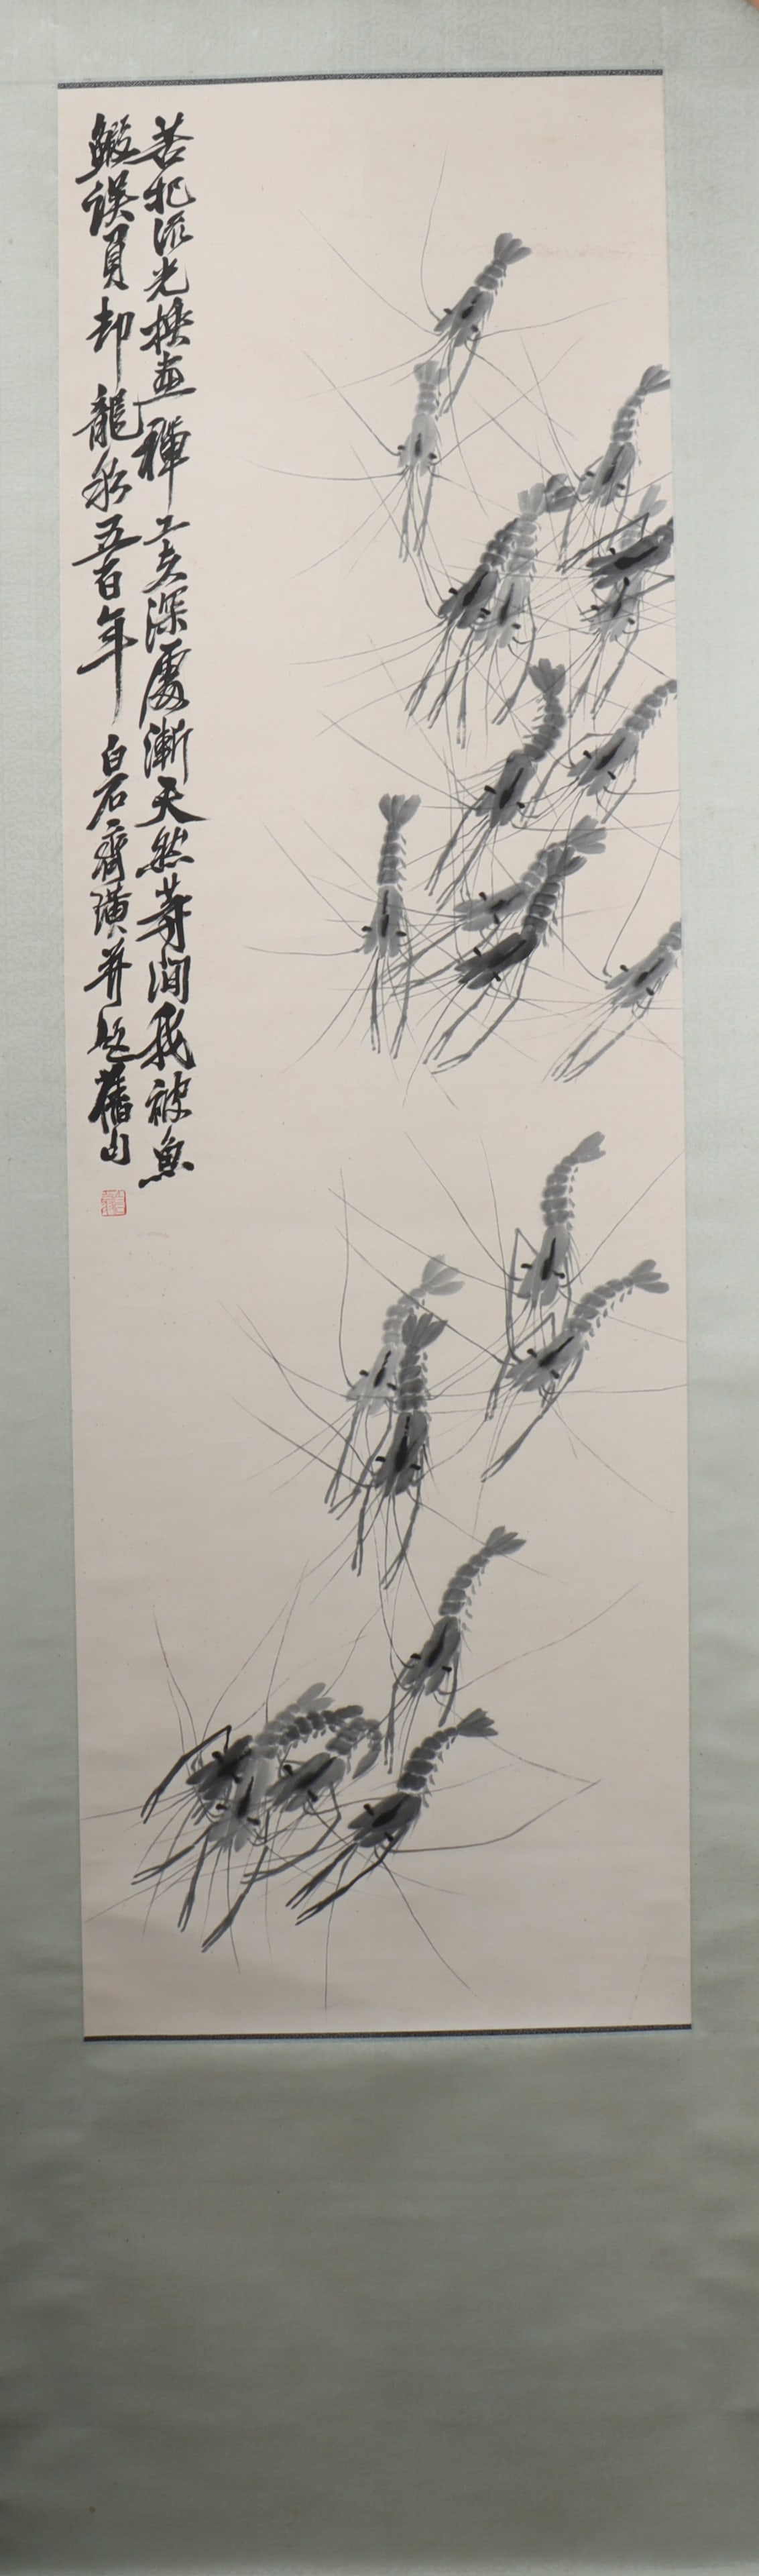 苦把流光換畫禪工夫深處漸天然等閒我被魚
鰕誤負却龍泉五百年 白石齊璜并題舊句